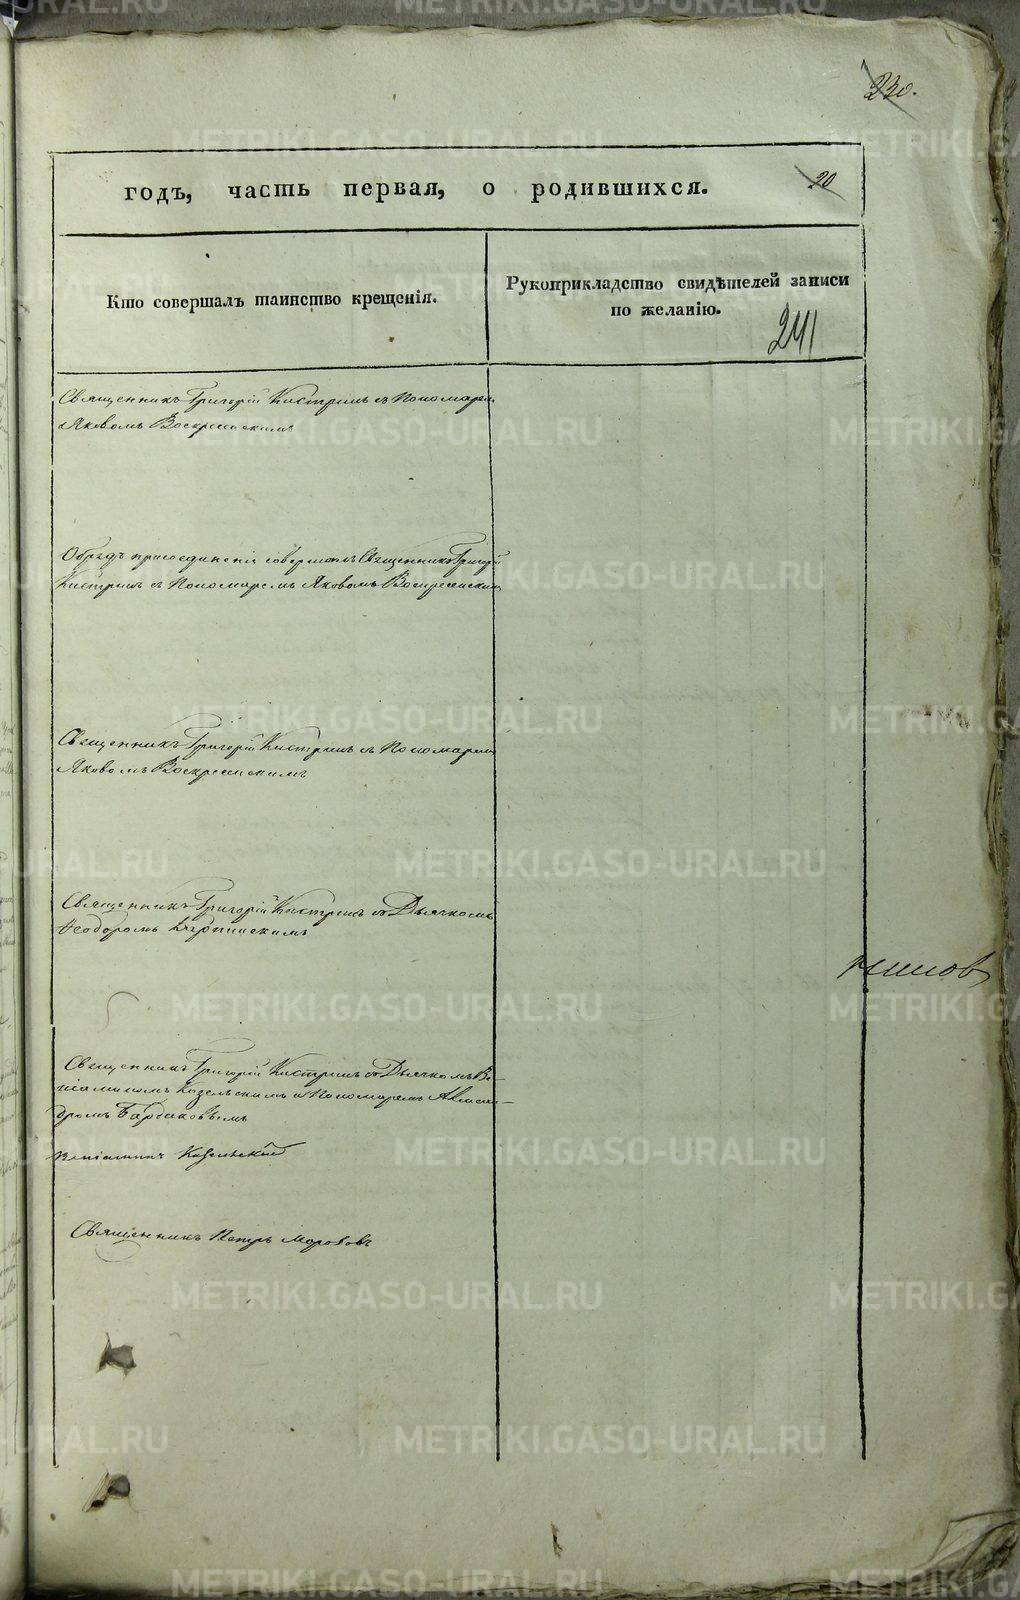 230.
годъ, часть первая, о родившихся.
20
Кто совершалъ таинство крещенія.
Рукоприкладство свидѣтелей записи
по желанію.
241
Священникъ Григорій Кистринъ съ Пономаремъ
Яковомъ Воскресенскимъ
Обрядъ присоединенія совершалъ Священникъ Григорій
Кистринъ съ Пономаремъ Яковомъ Воскресенскимъ
Священникъ Григорій Кистринъ съ Пономаремъ
Яковомъ Воскресенскимъ
Священникъ Григорій Кистринъ съ Дьячкомъ
Ѳеодоромъ
Священникъ Григорій Кистринъ съ Дьячкомъ Ве-
ніаминомъ Козельскимъ и Пономаремъ Алексан-
дромъ
Веніаминъ Козельскій
Священникъ Петръ Морозовъ
METRIKI.GASO-URAL.RU